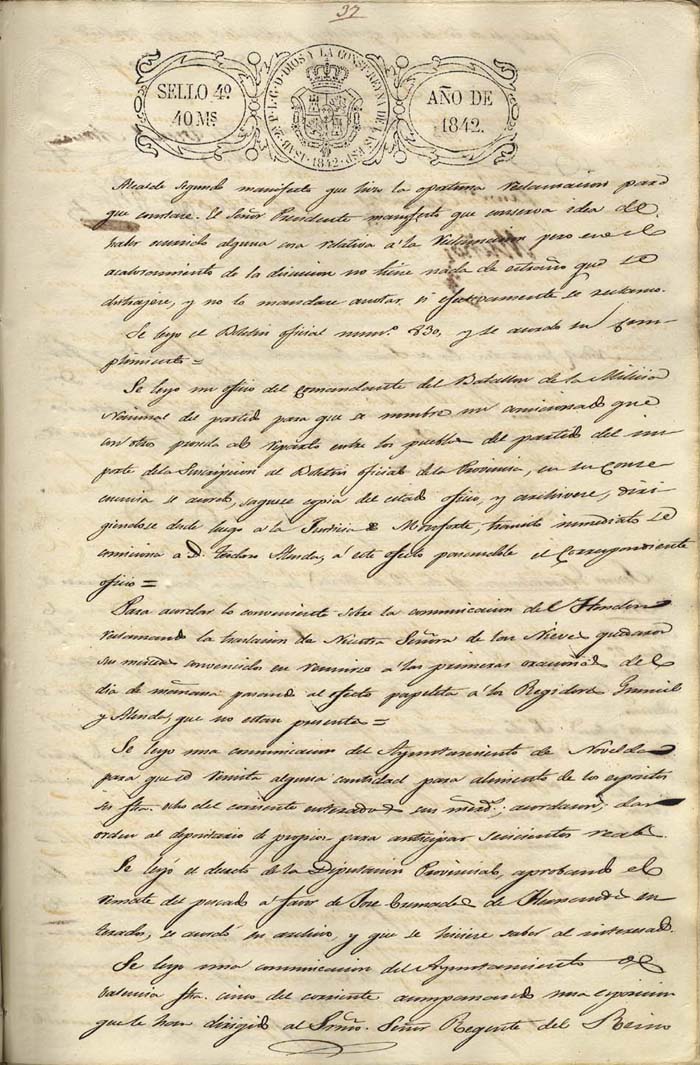 37
SELLO 4º 40 Ms.
ISAB. 2ª P. L. G. D. DIOS Y LA CONST. REYNA DE LAS ESP. 1842
AÑO DE 1842.
Alcalde segundo manifesto que hizo la oportuna reclamacion para
que constare. El Señor Presidente manifesto que conserva idea de
haber ocurrido alguna cosa relativa á la reclamacion pero en el
acaloramiento de la discusion no tiene nada de extraño que se
distrajere, y no lo mandare anotar si efectivamente se reclamo.
Se leyo el Boletin oficial num.º 830, y se acordo su cum-
plimiento =
Se leyo un oficio del Comandante del Batallon de la Milicia
Nacional del partido para que se nombre un comicionado que
con otro proceda al reparto entre los pueblos del partido del im
porte de la Suscripcion al Boletin oficial de la Provincia, en su conse
cuencia se acordo, saquese copia del citado oficio, y archivese, diri
giendose desde luego a la Justicia de Monforte, inmediato se
comiciona a D. Teodoro Alenda, a este efecto pasandole el correspondiente
oficio =
Para acordar lo conveniente sobre la comunicacion del
reclamando la traslacion de Nuestra Señora de las Nieves quedaron
sus mercedes convenidos en reunirse a las primeras oraciones del
dia de mañana pasando al efecto papeleta a los Regidores
y Alenda, que no estan presentes =
Se leyo una comunicacion del Ayuntamiento de Novelda
para que se remita alguna cantidad para alimento de los espositos
su fha. ocho del corriente enterados sus merds.; acordaron; dar
orden al depositario de propios para anticipar seicientos reales.
Se leyó el decreto de la Diputacion Provincial, aprobando el
remate del pescado a favor de Jose Cremades de Hernandez en
terados, se acordó su archivo, y que se hiciese saber al interesado.
Se leyo una comunicacion del Ayuntamiento de
Valencia fha. cinco del corriente acompañando una exposicion
que le han dirigido al Srmo. Señor Regente del Reino